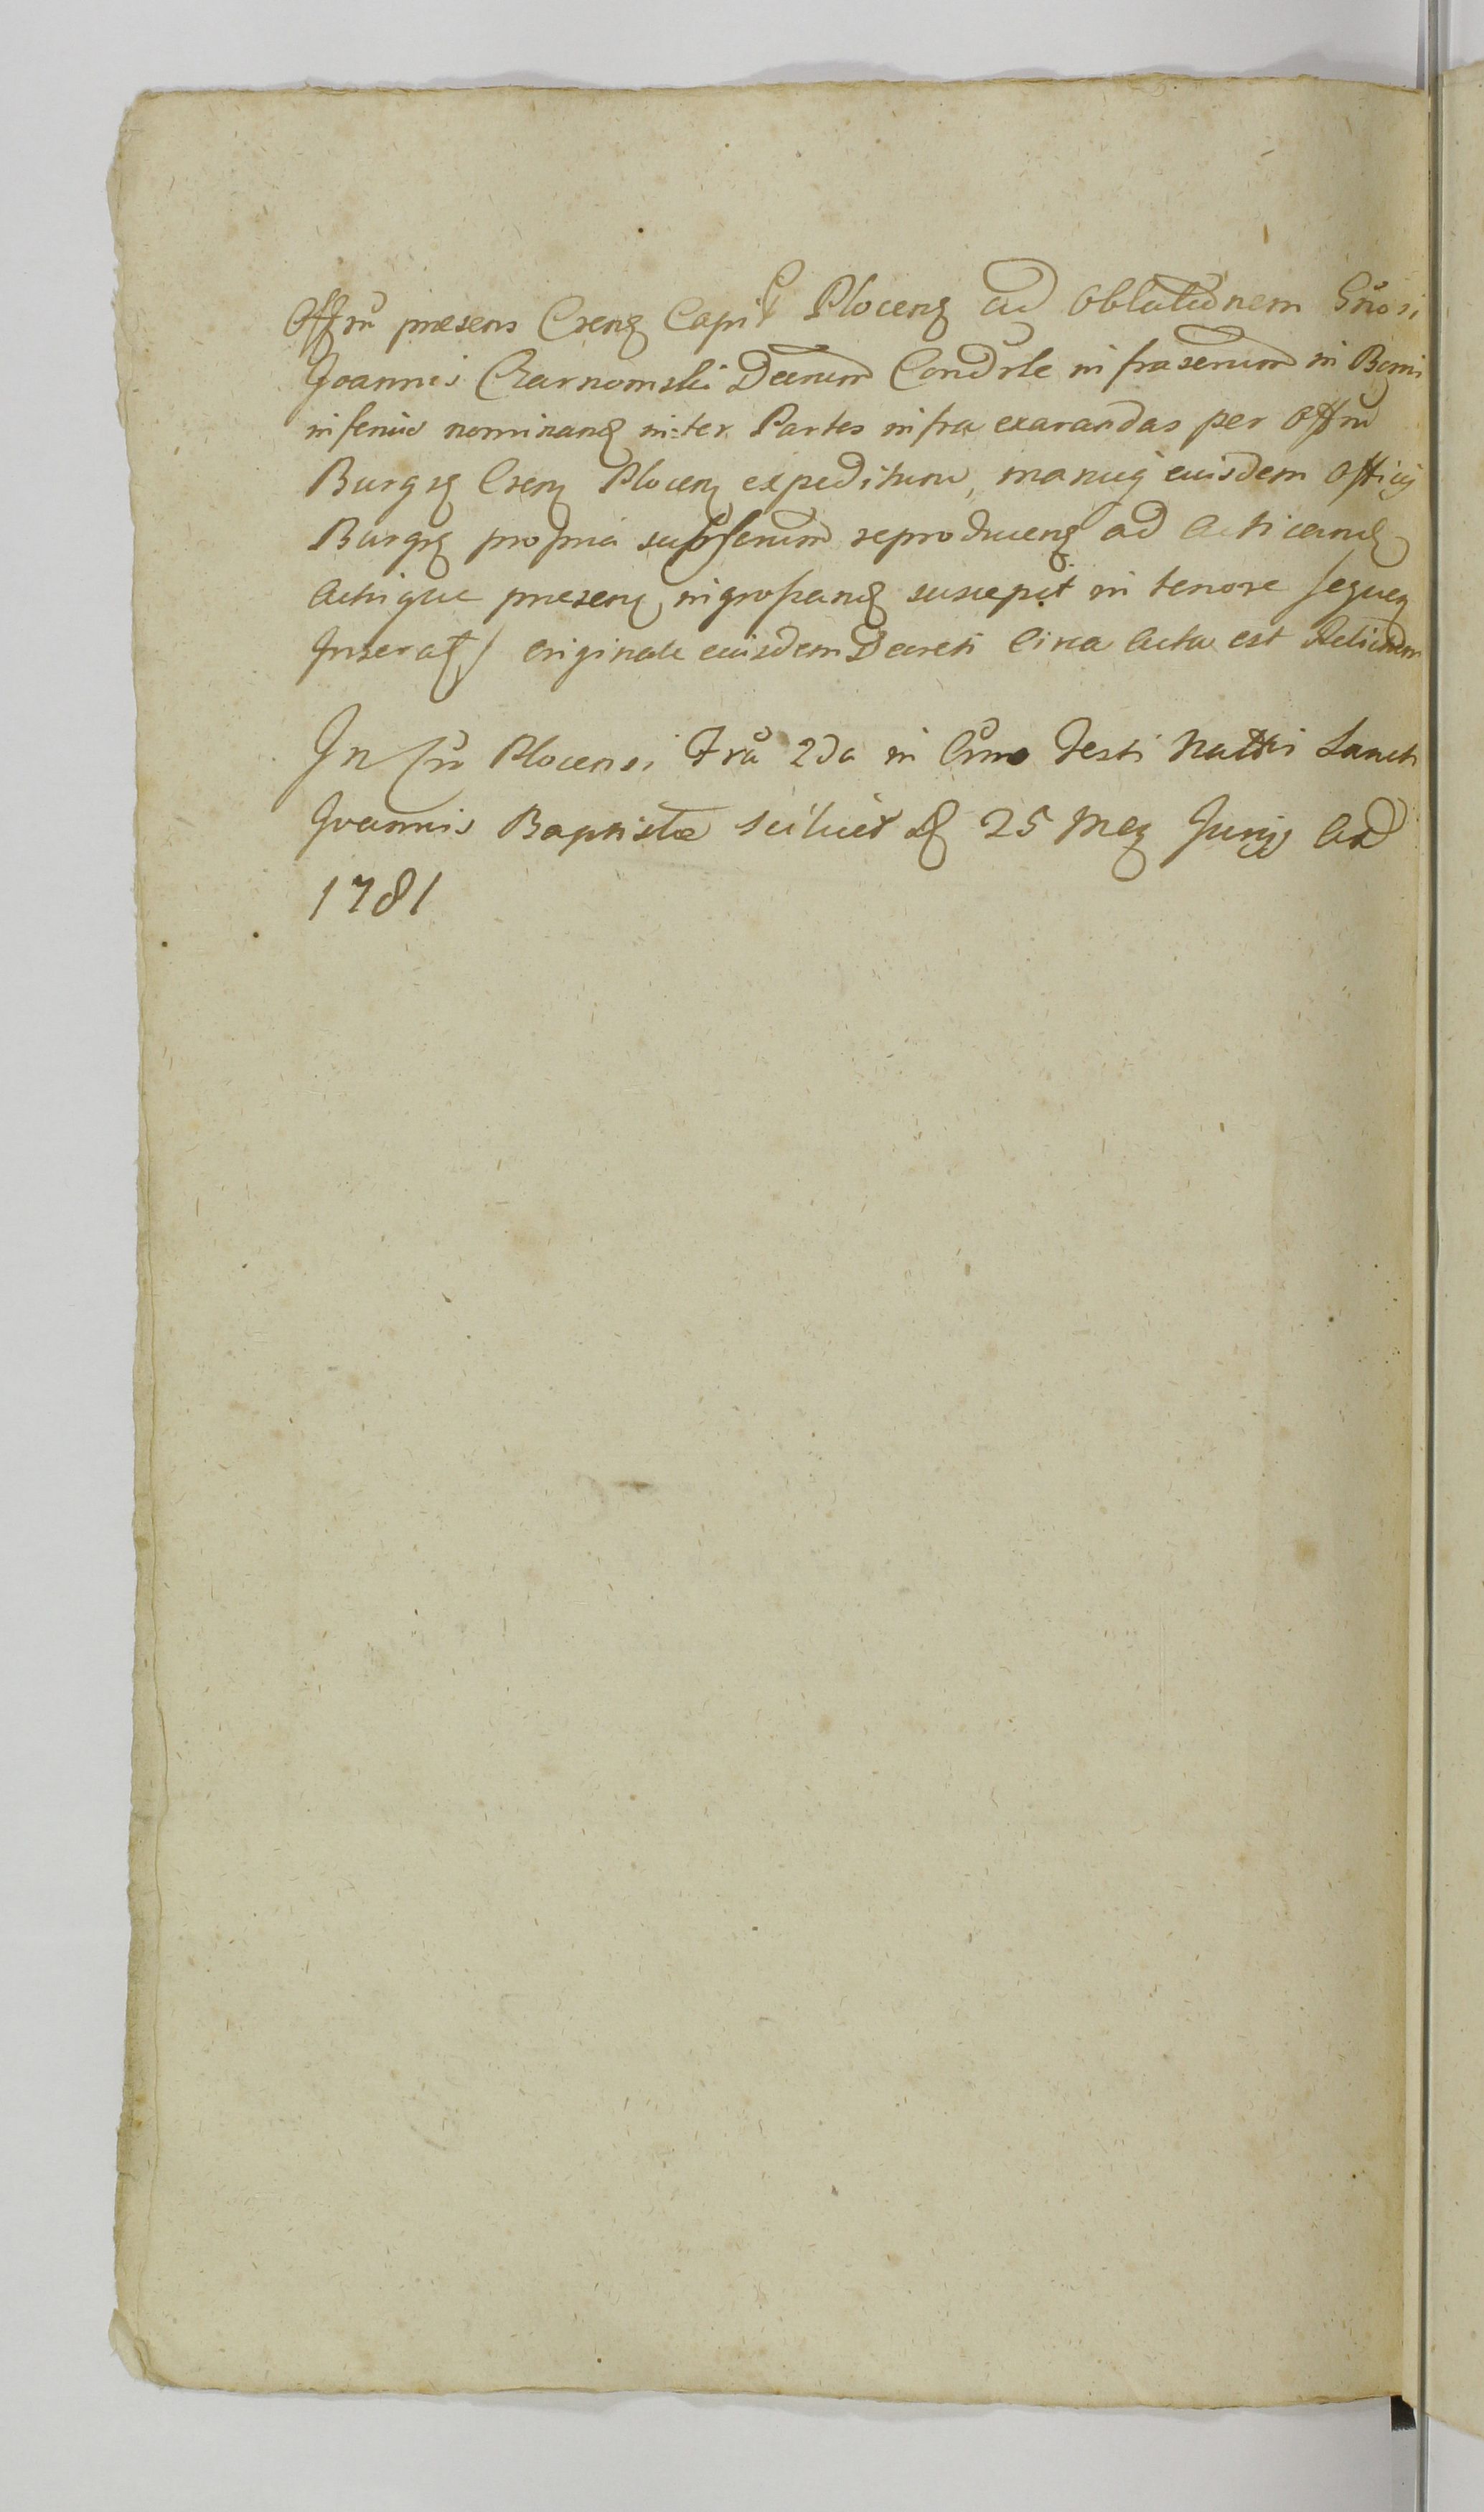 Offm̃ presens Crenς Capit Plocenς ad Oblationem Gñosi
Joannis Czarnomski Decrum Condrle infrascrium in Boni
inferius nominanς inter Partes infra exarandas per Offm̃
Burgς Crenς Plocenς expeditum, manuς eiusdem Officij
Burgς propria subscrium reproducenς ad acticanς
Actisque presenς ingrossanς suscepit in tenore sequenς
Inseratς originale eiusdem Decreti Circa Acta est Relictum
In Crõ Plocensi Fra 2da in Crno Festi Natti Sancti
Joannis Baptistæ scilicet d 25 Menς Junij AD
1781